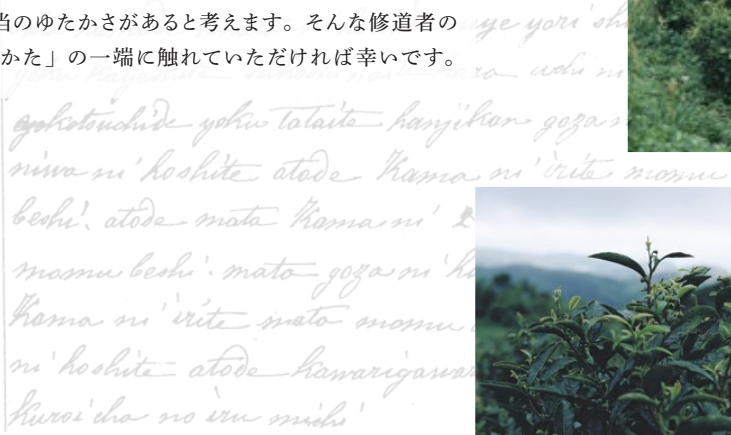 当のゆたかさがあると考えます。そんな修道者の
かた」の一端に触れていただければ幸いです。
uye yori shi
uchi ni
yoku tataite hanjikan goza n
niwa ni hoshite atode Kama ni irite momu
beshi. atode mata Kama ni
momu beshi. mata goza ni h
Kama ni irite mata momu
ni hoshite atode kawarigawar
Kuroi cha no iru michi